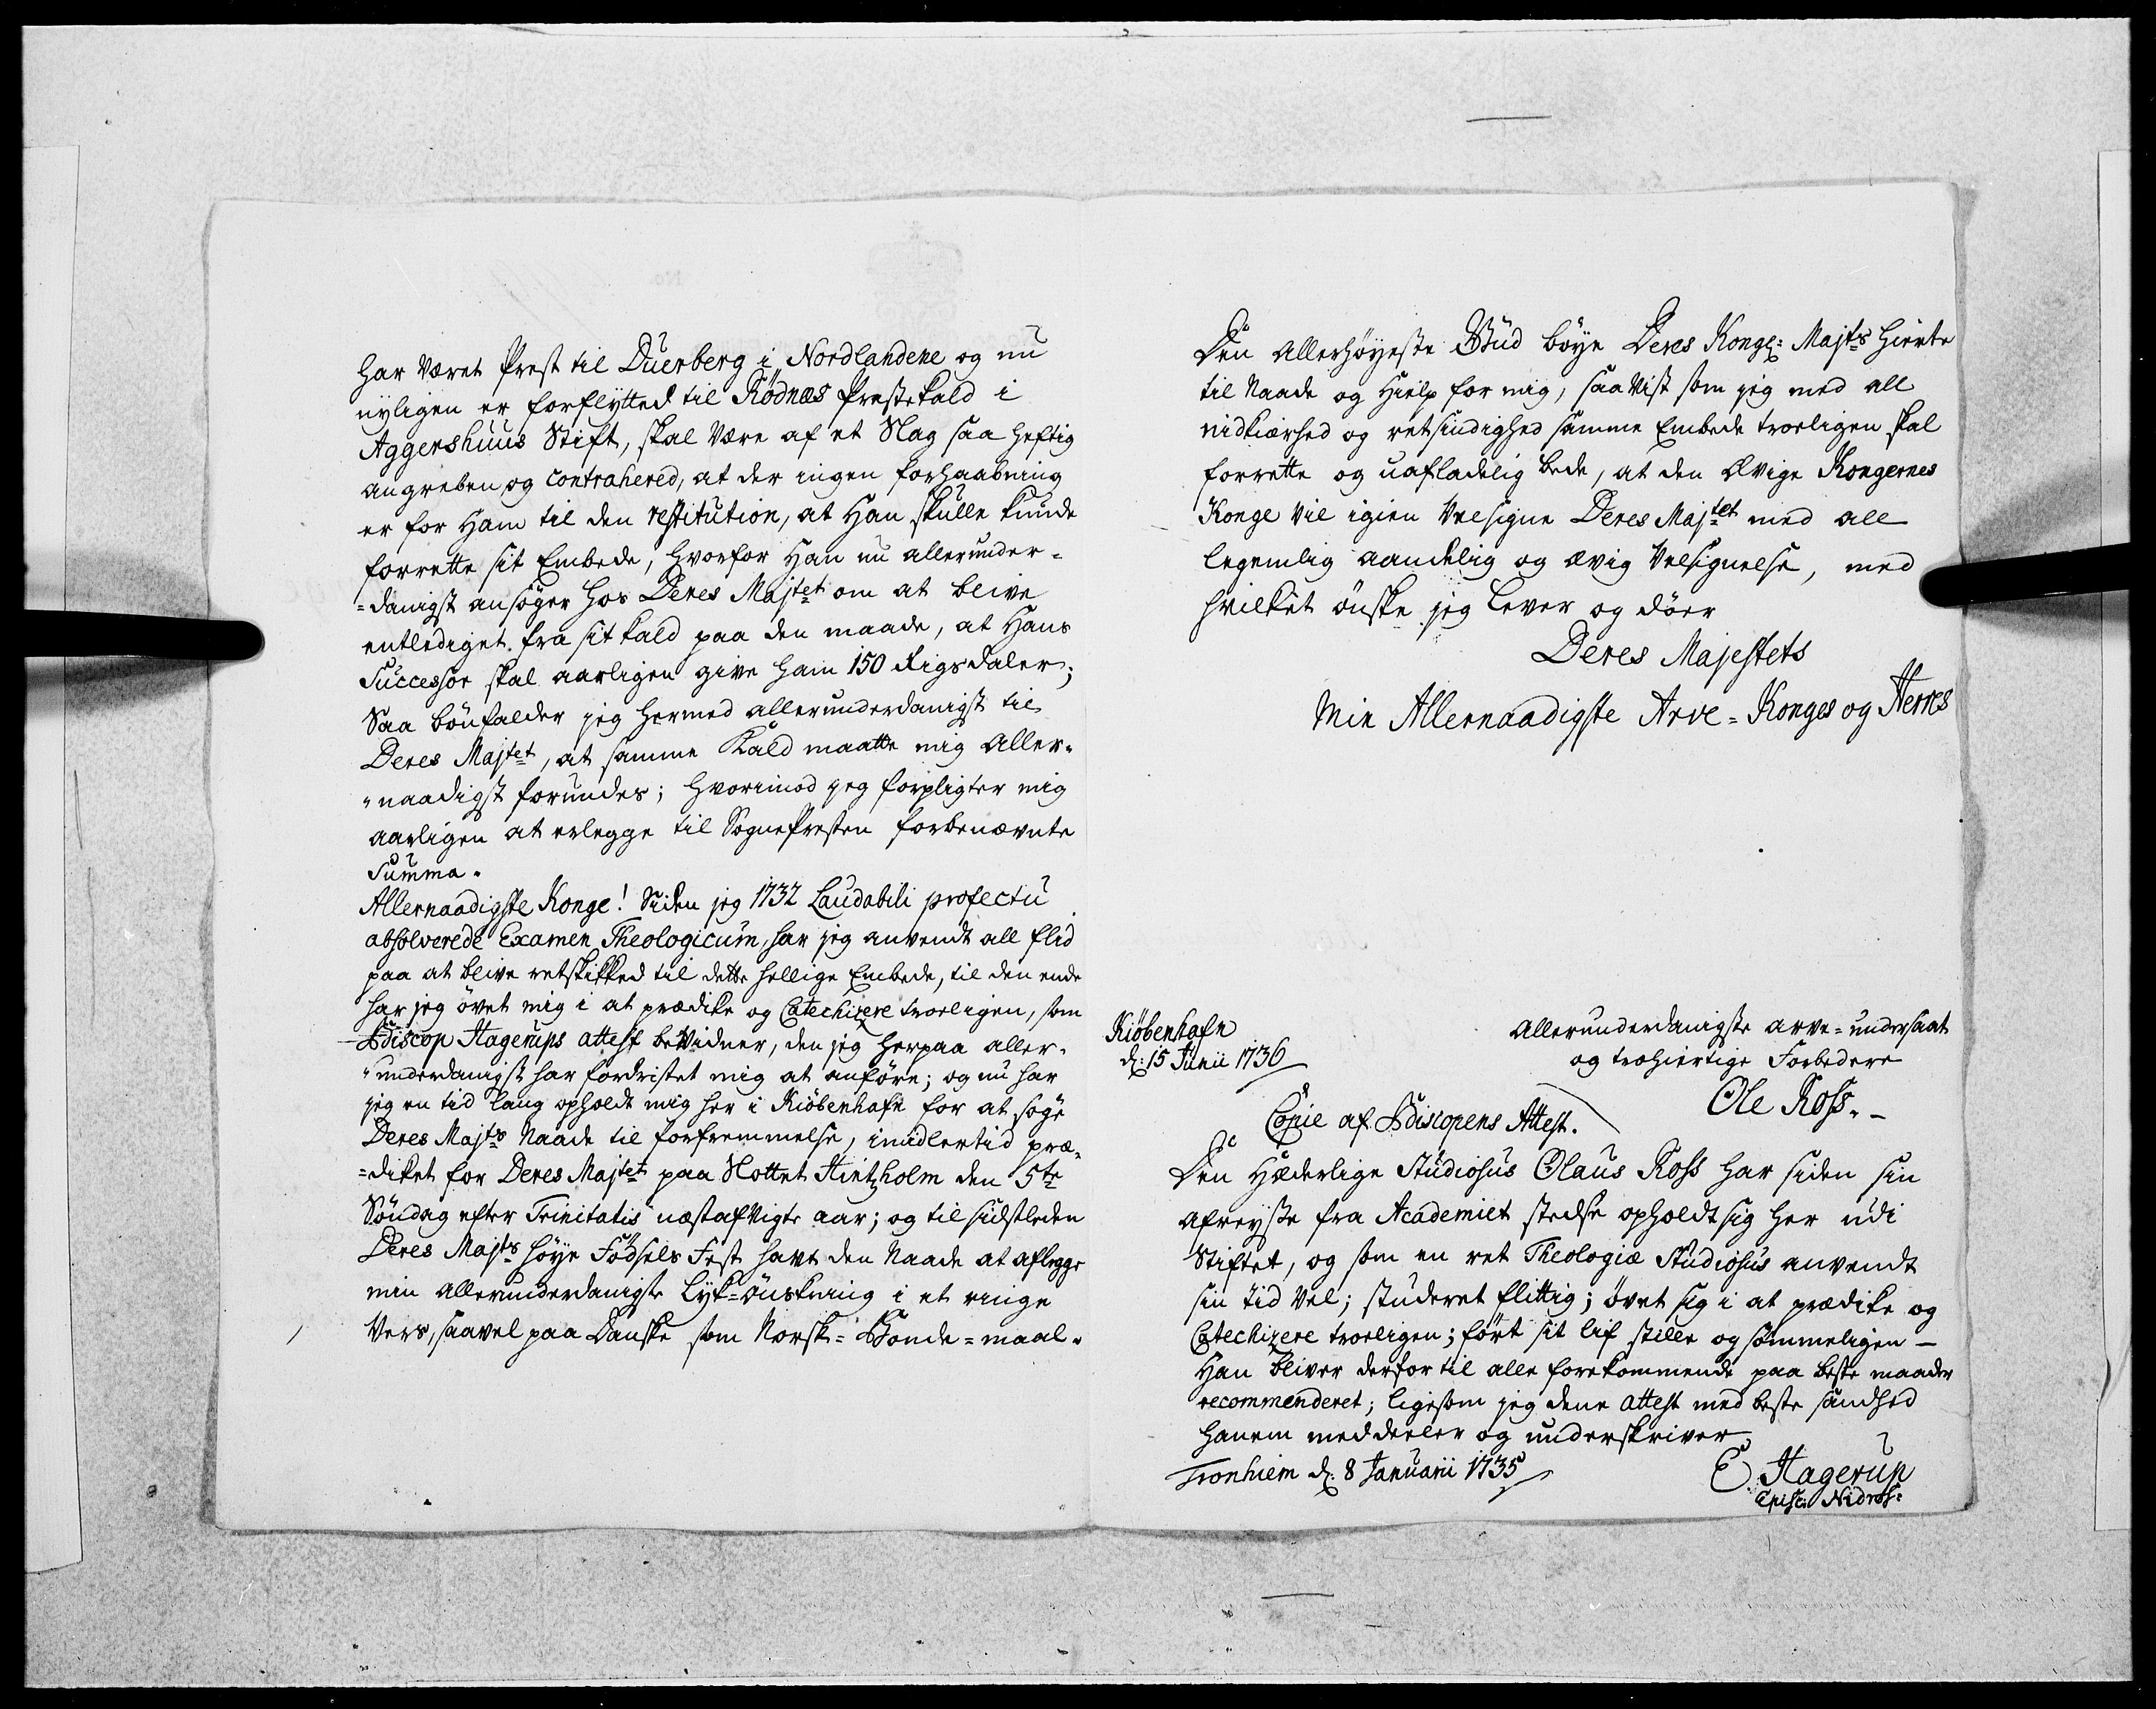 har været Prest til Duerberg i Nordlandene og nu
nyligen er forflytted til Rödnæs Prestekald i
Aggershuus Stift, skal være af et Slag saa heftig
angreben og contrahered, at der ingen forhaabning
er for Ham til den restitution, at Han skulle kunde
forrette sit Embede, hvorfor Han nu allerunder-
=danigst ansöger hos Deres Majtet om at blive
entlediget fra sit kald paa den maade, at Hans
Successor skal aarligen give ham 150 Rigsdaler;
Saa bönfalder jeg hermed allerunderdanigst til
Deres Majtet, at samme Kald maatte mig Aller-
"naadigst forundes; hvorimod jeg forpligter mig
aarligen at erlegge til SognePresten forbenævnte
Summa.
Allernaadigste Konge! Siden jeg 1732 Laudabili profectu
absolverede Examen Theologicum, har jeg anvendt all flid
paa at blive retskikked til dette hellige Embede, til den ende
har jeg övet mig i at prædike og Catechizere troeligen, som
Biscop Hagerups attest beVidner, den jeg herpaa aller-
"underdanigst har fordristet mig at anföre; og nu har
jeg en tid lang opholdt mig her i Kiöbenhafn for at söge
Deres Majts Naade til forfremmelse, imidlertid præ-
=diket for Deres Majtet paa Slottet Hirtzholm den 5te
Söndag efter Trinitatis næstafvigte aar; og til sidstleden
Deres Majts höye Födsels Fest havt den Naade at aflegge
min allerunderdanigste Lyk=önskning i et ringe
Vers, saavel paa Danske som Norsk=Bonde=maal.
Den Allerhöyeste Gud böye Deres Kongl: Majts hierte
til Naade og Hielp for mig, saa vist som jeg med all
nidkiærhed og retsindighed samme Embede troeligen skal
forrette og uafladelig bede, at den Ævige Kongernes
Konge vil igien Velsigne Deres Majtet med all
legemlig aandelig og ævig Velsignelse, med
hvilket önske jeg lever og döer
Deres Majestets
Min Allernaadigste Arve=Konges og Herres
Kiöbenhafn
d: 15 Junii 1736
Allerunderdanigste arve=undersaat
og trohiertige Forbedere
Ole Ross.
Copie af Biscopens Attest.
Den Hæderlige Studiosus Olaus Ross har siden sin
afreyse fra Academiet stedse opholdt sig her udi
Stiftet, og som en ret Theologiæ Studiosus anvendt
sin tid vel; studeret flittig; övet sig i at prædike og
Catechizere troeligen; fört sit lif stille og sömmeligen –
Han bliver derfor til alle forekommende paa beste maader
recommenderet; ligesom jeg denne attest med beste sandhed
hannem meddeeler og underskriver
Tronhiem d: 8 Januarii 1735
E. Hagerup
Episc: Nidros: